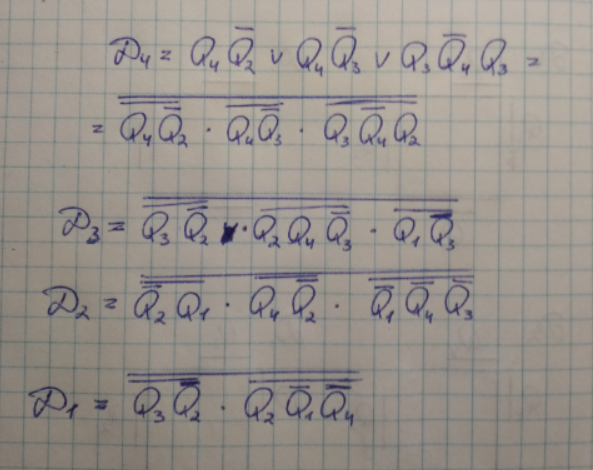 D₄ = Q₄Q̅₂ ∨ Q₄Q̅₃ ∨ Q₃Q̅₄Q₃ =
= \overline{\overline{Q₄Q̅₂} · \overline{Q₄Q̅₃} · \overline{Q₃Q̅₄Q₂}}
D₃ = \overline{\overline{Q₃Q̅₂} · \overline{Q₂Q₄Q̅₃} · \overline{Q₁Q̅₃}}
D₂ = \overline{\overline{Q̅₂Q₁} · \overline{Q₄Q̅₂} · \overline{Q̅₁Q̅₄Q̅₃}}
D₁ = \overline{\overline{Q₃Q̅₂} · \overline{Q₂Q̅₁Q̅₄}}